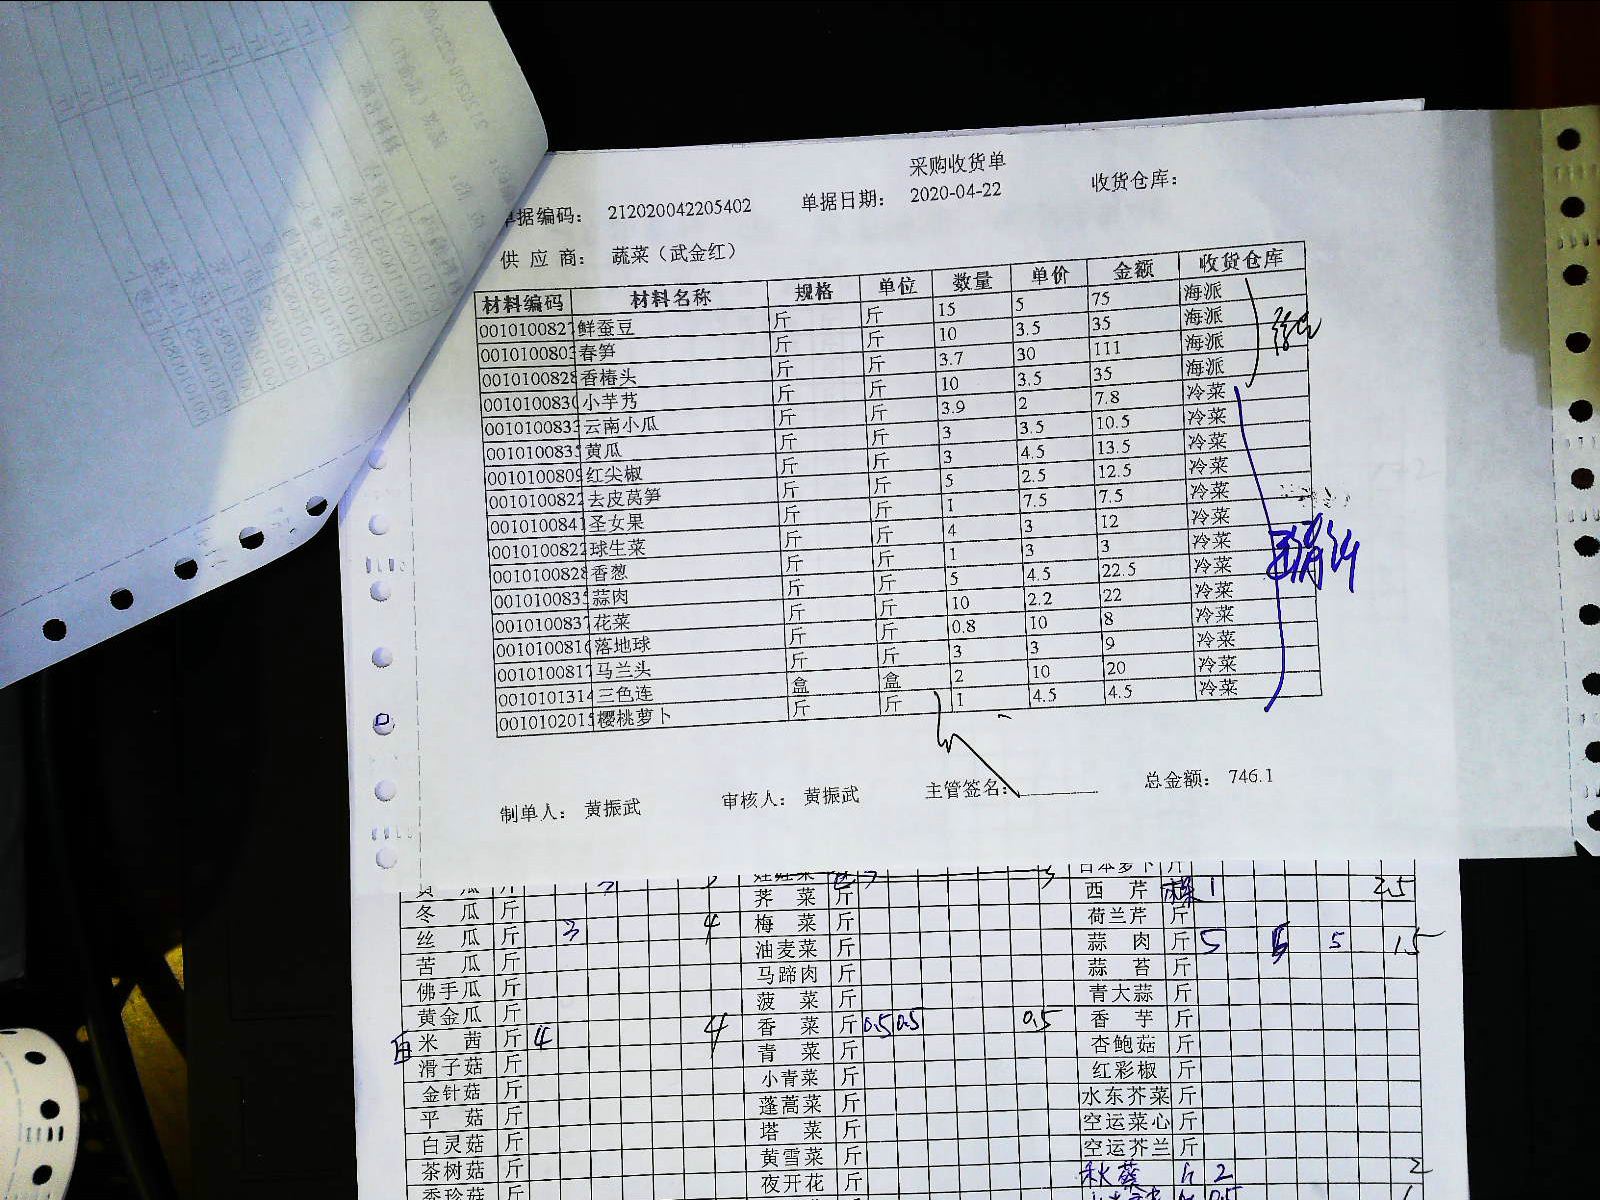 采购收货单
单据编码： 212020042205402 单据日期： 2020-04-22 收货仓库：
供 应 商： 蔬菜（武金红）
材料编码 材料名称 规格 单位 数量 单价 金额 收货仓库
001010082 鲜蚕豆 斤 斤 15 5 75 海派
001010080 春笋 斤 斤 10 3.5 35 海派
001010082 香椿头 斤 斤 3.7 30 111 海派
001010083 小芋艿 斤 斤 10 3.5 35 海派
001010083 云南小瓜 斤 斤 3.9 2 7.8 冷菜
001010083 黄瓜 斤 斤 3 3.5 10.5 冷菜
001010080 红尖椒 斤 斤 3 4.5 13.5 冷菜
001010082 去皮莴笋 斤 斤 5 2.5 12.5 冷菜
001010084 圣女果 斤 斤 1 7.5 7.5 冷菜
001010082 球生菜 斤 斤 4 3 12 冷菜
001010082 香葱 斤 斤 1 3 3 冷菜
001010083 蒜肉 斤 斤 5 4.5 22.5 冷菜
001010083 花菜 斤 斤 10 2.2 22 冷菜
001010081 落地球 斤 斤 0.8 10 8 冷菜
001010081 马兰头 斤 斤 3 3 9 冷菜
0010101314 三色连 盒 盒 2 10 20 冷菜
001010201 樱桃萝卜 斤 斤 1 4.5 4.5 冷菜
制单人： 黄振武 审核人： 黄振武 主管签名： 总金额： 746.1
日本萝卜 斤
瓜 斤 荠 菜 斤 西 芹 1 2.5
冬 瓜 斤 梅 菜 斤 荷兰芹 斤
丝 瓜 斤 3 4 油麦菜 斤 蒜 肉 斤 5 5 5 15
苦 瓜 斤 马蹄肉 斤 蒜 苔 斤
佛手瓜 斤 菠 菜 斤 青大蒜 斤
黄金瓜 斤 香 菜 斤 0.5 0.5 0.5 香 芋 斤
米 茜 斤 4 4 青 菜 斤 杏鲍菇 斤
滑子菇 斤 小青菜 斤 红彩椒 斤
金针菇 斤 蓬蒿菜 斤 水东芥菜 斤
平 菇 斤 塔 菜 斤 空运菜心 斤
白灵菇 斤 黄雪菜 斤 空运芥兰 斤
茶树菇 斤 夜开花 斤 秋葵 斤 2 2
香珍菇 斤 0.5